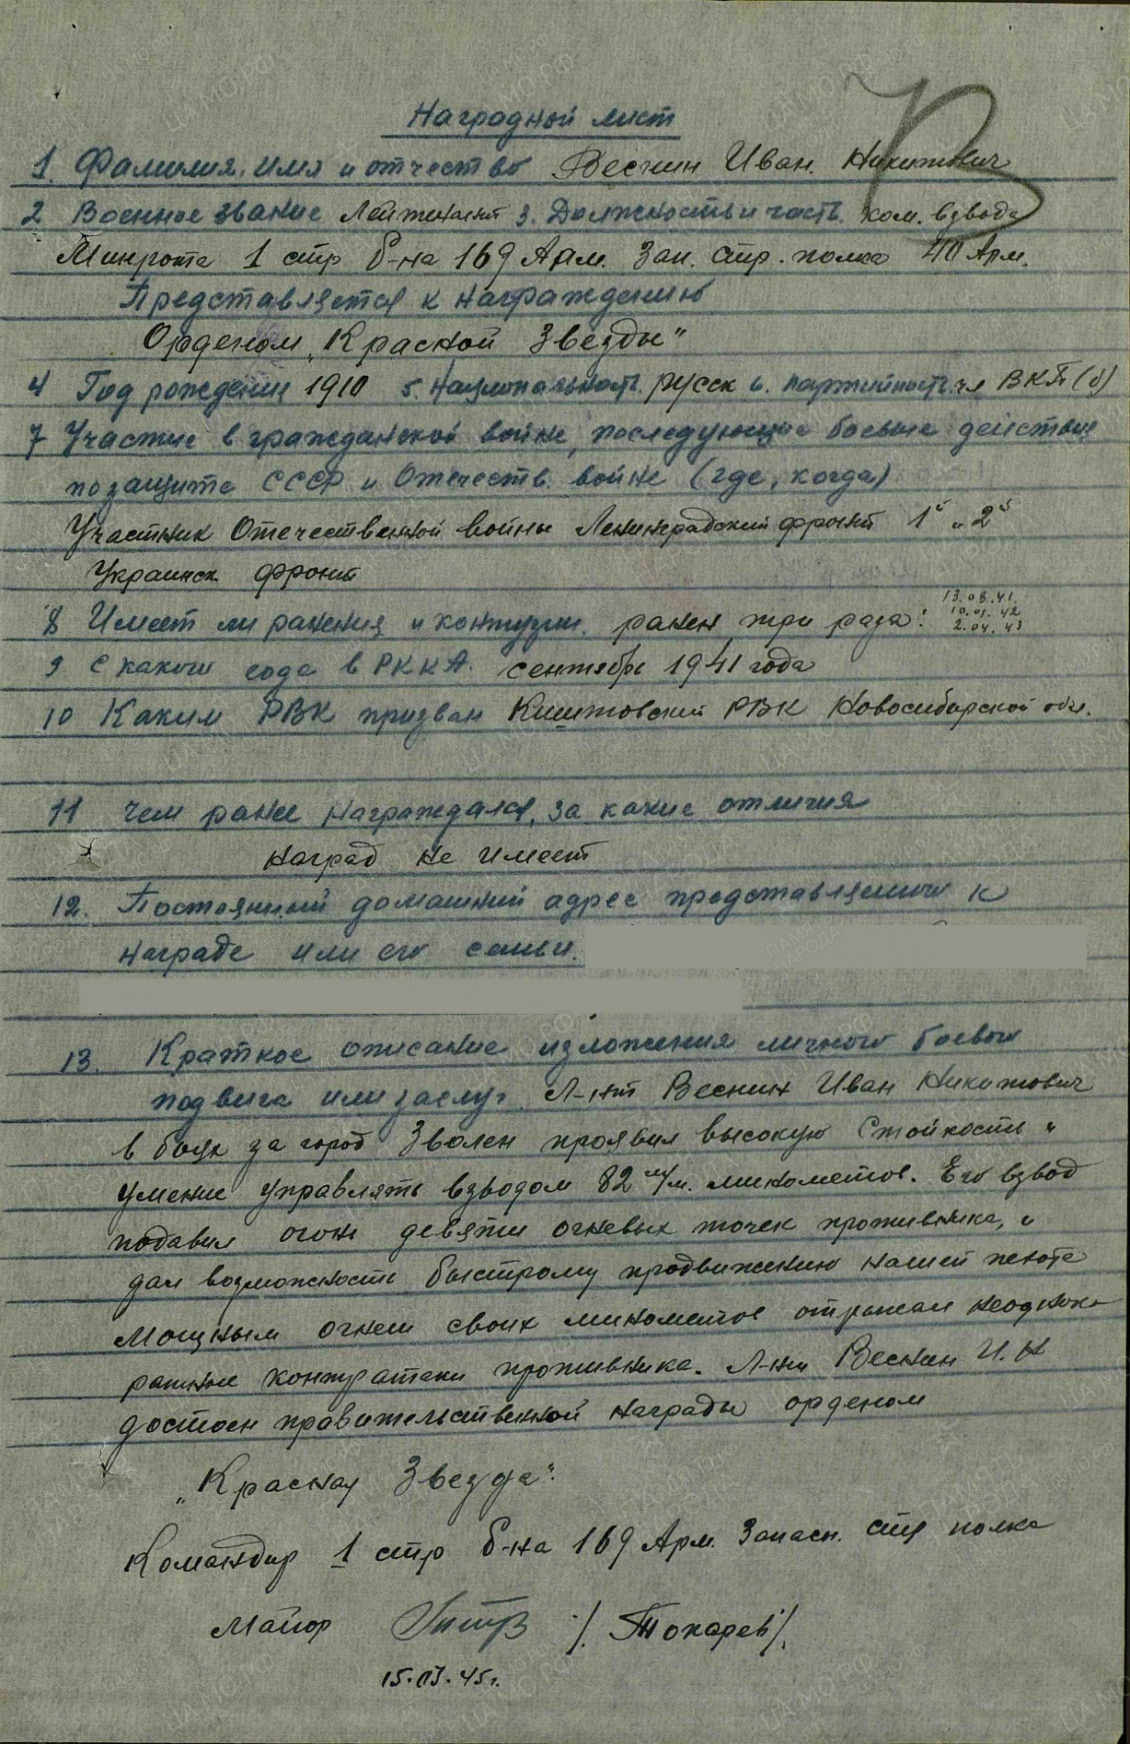 Наградной лист
1. Фамилия, имя и отчество Веснин Иван Никитович
2 Военное звание Лейтенант 3. Должность и часть ком. взвода
Минрота 1 стр б-на 169 Арм. Зап. стр. полка 40 Арм.
Представляется к награждению
Орденом „Красной Звезды"
4 Год рождения 1910 5. Национальность русск 6. партийность чл ВКП(б)
7 Участие в гражданской войне, последующие боевые действия
по защите СССР и Отечеств. войне (где, когда)
Участник Отечественной войны Ленинградский фронт 1й и 2й
Украинск фронт
8 Имеет ли ранения и контузии. ранен три раза: 13.08.41
10.01.42
2.04.43
9 С какого года в РККА. сентябрь 1941 года
10 Каким РВК призван Кыштовский РВК Новосибирской обл.
11 Чем ранее награждался, за какие отличия
наград не имеет
12. Постоянный домашний адрес представляемого к
награде или его семьи.
13. Краткое описание изложения личного боевого
подвига или заслуг. Л-нт Веснин Иван Никитович
в боях за город Зволен проявил высокую стойкость и
умение управлять взводом 82 м/м. минометов. Его взвод
подавил огонь девяти огневых точек противника, и
дал возможность быстрому продвижению нашей пехоте
Мощным огнем своих минометов отражал неоднок-
ратные контратаки противника. Л-нт Веснин И. Н
достоен правительственной награды орденом
„Красная Звезда".
Командир 1 стр б-на 169 Арм. Запасн. стр полка
Майор /Токарев/.
15.03.45г.